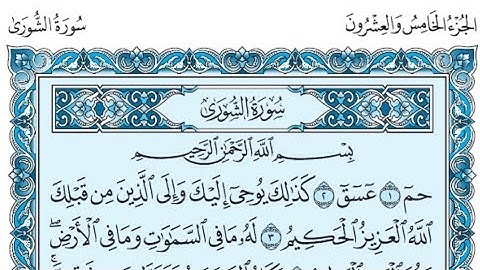 الجُزْءُ الخَامِسُ وَالعِشْرُونَ
سُورَةُ الشُّورَىٰ
سُورَةُ الشُّورَىٰ
بِسْمِ ٱللَّهِ ٱلرَّحْمَٰنِ ٱلرَّحِيمِ
حمٓ ١ عٓسٓقٓ ٢ كَذَٰلِكَ يُوحِىٓ إِلَيْكَ وَإِلَى ٱلَّذِينَ مِن قَبْلِكَ
ٱللَّهُ ٱلْعَزِيزُ ٱلْحَكِيمُ ٣ لَهُۥ مَا فِى ٱلسَّمَٰوَٰتِ وَمَا فِى ٱلْأَرْضِ ۖ